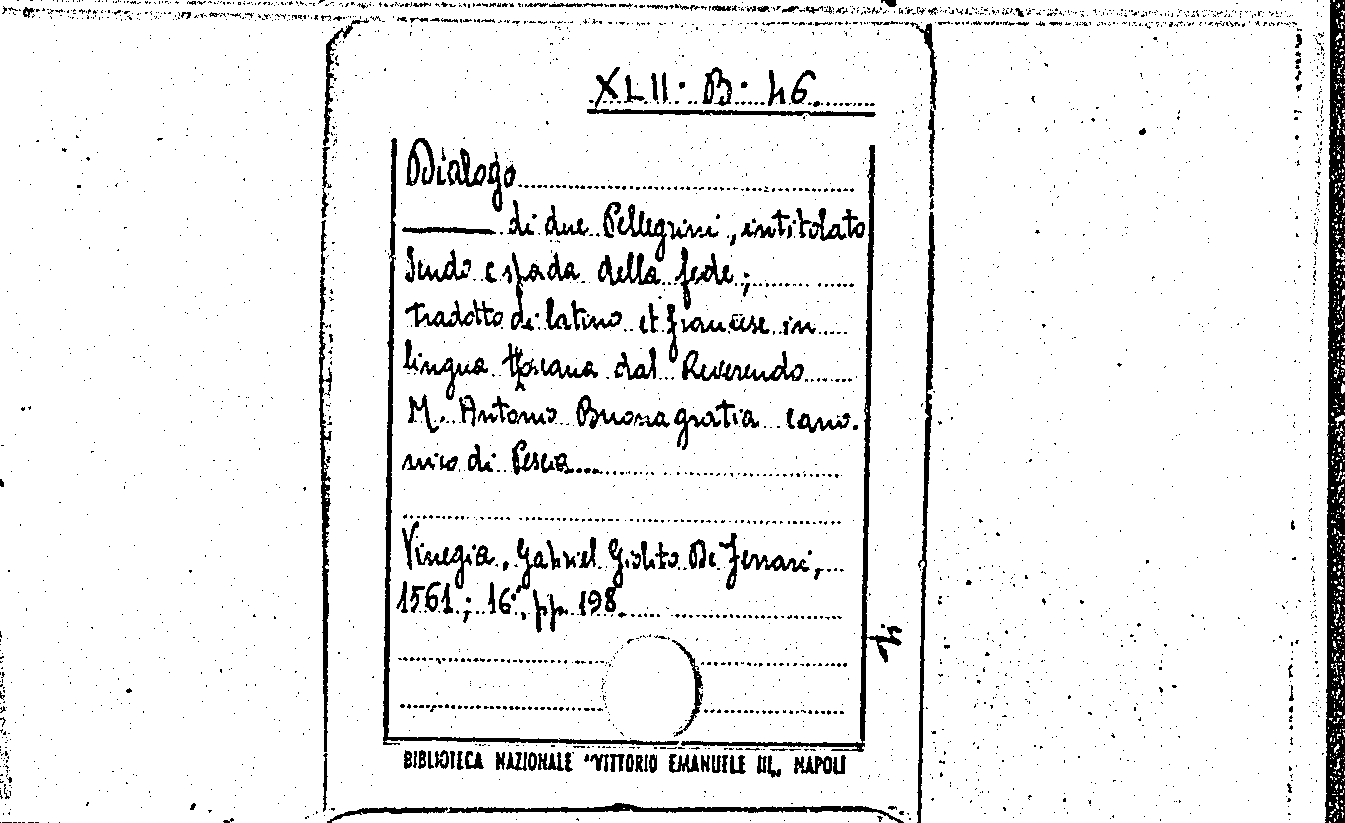 XLII. B. 46.
Dialogo
di due Pellegrini, intitolato
Scudo e spada della fede;
tradotto di latino et francese in
lingua toscana dal Reverendo
M. Antonio Buonagratia cano-
nico di Pescia...
Vinegia, Gabriel Giolito De Ferrari,
1561; 16°, pp. 198.
BIBLIOTECA NAZIONALE "VITTORIO EMANUELE III„ NAPOLI